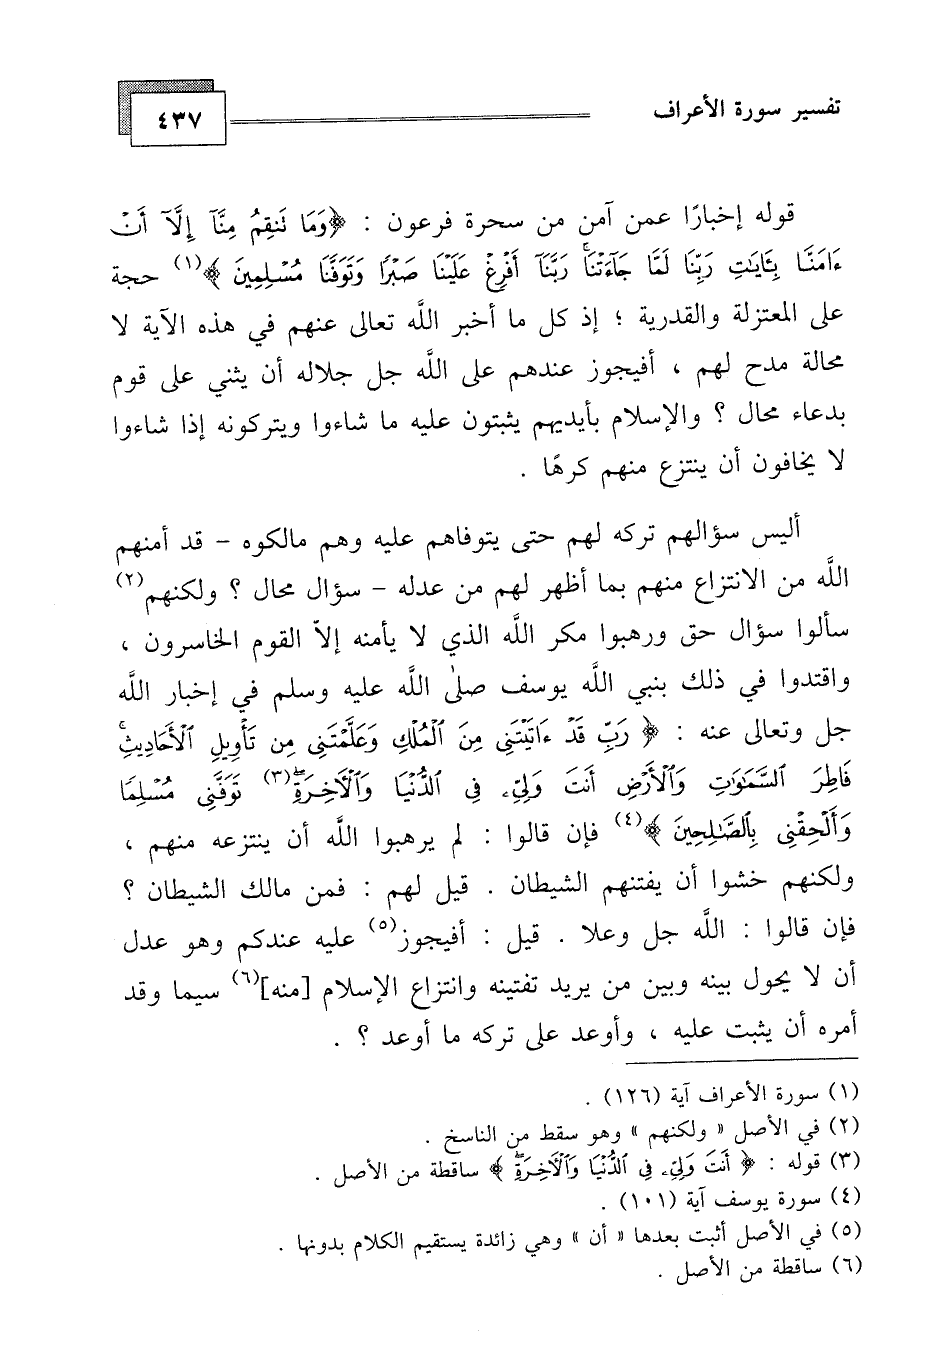 تفسير سورة الأعراف
٤٣٧
قوله إخبارًا عمن آمن من سحرة فرعون : ﴿وَمَا تَنقِمُ مِنَّآ إِلَّآ أَنْ
ءَامَنَّا بِـَٔايَـٰتِ رَبِّنَا لَمَّا جَآءَتْنَا ۚ رَبَّنَآ أَفْرِغْ عَلَيْنَا صَبْرًا وَتَوَفَّنَا مُسْلِمِينَ ﴾(١) حجة
على المعتزلة والقدرية ؛ إذ كل ما أخبر اللَّه تعالى عنهم في هذه الآية لا
محالة مدح لهم ، أفيجوز عندهم على اللَّه جل جلاله أن يثني على قوم
بدعاء محال ؟ والإسلام بأيديهم يثبتون عليه ما شاءوا ويتركونه إذا شاءوا
لا يخافون أن ينتزع منهم كرهًا .
أليس سؤالهم تركه لهم حتى يتوفاهم عليه وهم مالكوه – قد أمنهم
اللَّه من الانتزاع منهم بما أظهر لهم من عدله – سؤال محال ؟ ولكنهم(٢)
سألوا سؤال حق ورهبوا مكر اللَّه الذي لا يأمنه إلاّ القوم الخاسرون ،
واقتدوا في ذلك بنبي اللَّه يوسف صلى اللَّه عليه وسلم في إخبار اللَّه
جل وتعالى عنه : ﴿ رَبِّ قَدْ ءَاتَيْتَنِى مِنَ ٱلْمُلْكِ وَعَلَّمْتَنِى مِن تَأْوِيلِ ٱلْأَحَادِيثِ ۚ
فَاطِرَ ٱلسَّمَـٰوَٰتِ وَٱلْأَرْضِ أَنتَ وَلِىِّۦ فِى ٱلدُّنْيَا وَٱلْـَٔاخِرَةِ ۖ(٣) تَوَفَّنِى مُسْلِمًا
وَأَلْحِقْنِى بِٱلصَّـٰلِحِينَ ﴾(٤) فإن قالوا : لم يرهبوا اللَّه أن ينتزعه منهم ،
ولكنهم خشوا أن يفتنهم الشيطان . قيل لهم : فمن مالك الشيطان ؟
فإن قالوا : اللَّه جل وعلا . قيل : أفيجوز(٥) عليه عندكم وهو عدل
أن لا يحول بينه وبين من يريد تفتينه وانتزاع الإسلام [منه](٦) سيما وقد
أمره أن يثبت عليه ، وأوعد على تركه ما أوعد ؟ .
(١) سورة الأعراف آية (١٢٦) .
(٢) في الأصل « ولكنهم » وهو سقط من الناسخ .
(٣) قوله : ﴿ أَنتَ وَلِىِّۦ فِى ٱلدُّنْيَا وَٱلْـَٔاخِرَةِ ۖ ﴾ ساقطة من الأصل .
(٤) سورة يوسف آية (١٠١) .
(٥) في الأصل أثبت بعدها « أن » وهي زائدة يستقيم الكلام بدونها .
(٦) ساقطة من الأصل .